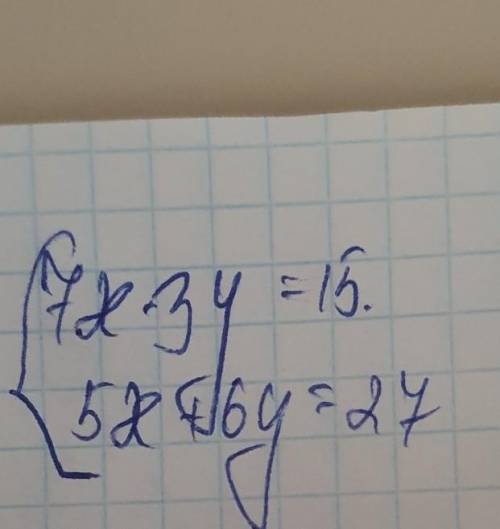 7x-3y=15.
5x+6y=27